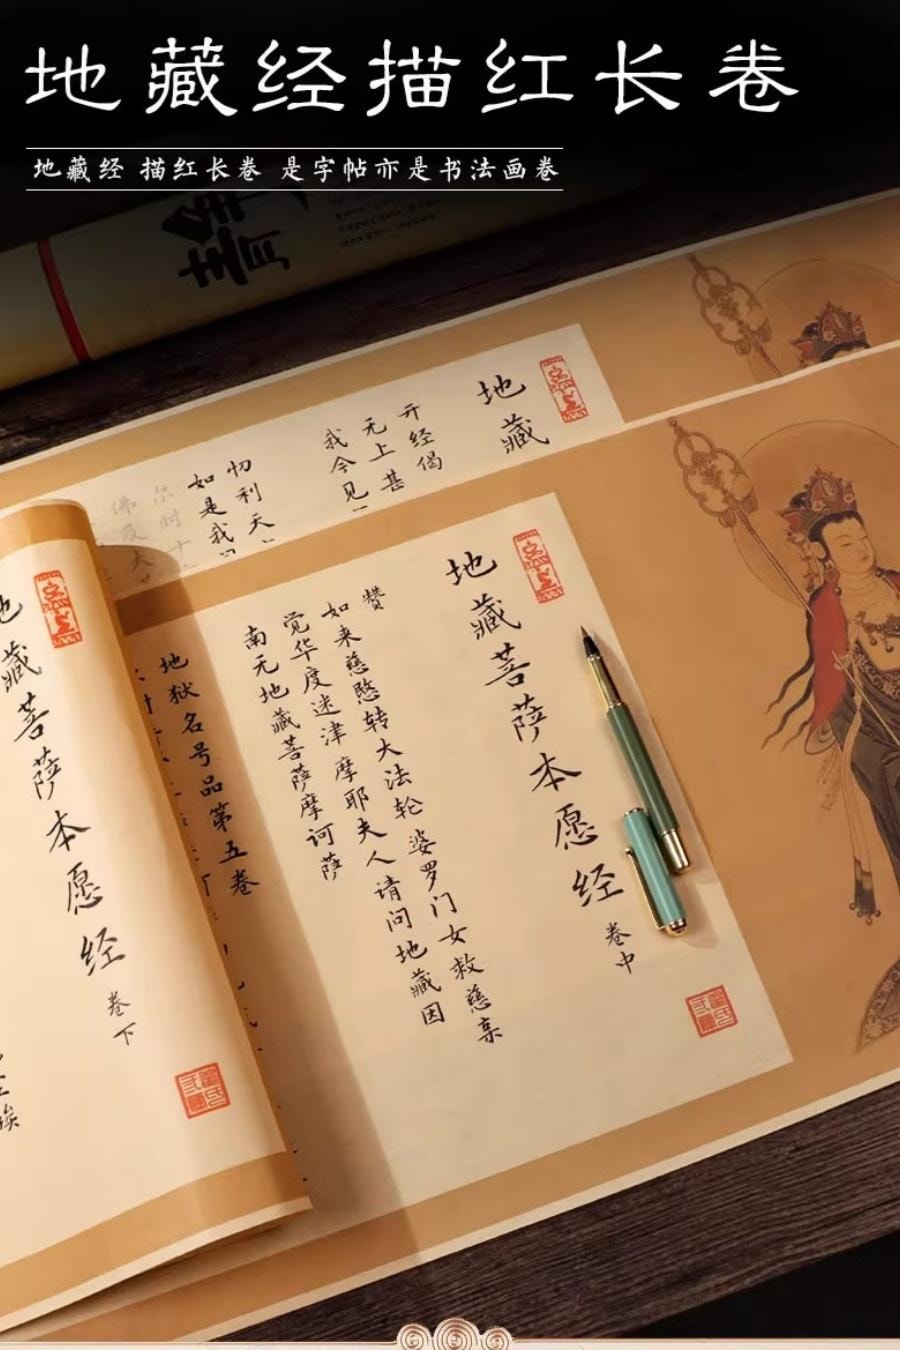 地藏经描红长卷
地藏经 描红长卷 是字帖亦是书法画卷
地藏
开经偈
无上甚
我今见
忉利天
如是我
尔时十
佛及大
地藏菩萨本愿经 卷中
赞
如来慈愍转大法轮 婆罗门女救慈亲
觉华度迷津 摩耶夫人请问地藏因
南无地藏菩萨摩诃萨
地狱名号品第五卷
地藏菩萨本愿经 卷下